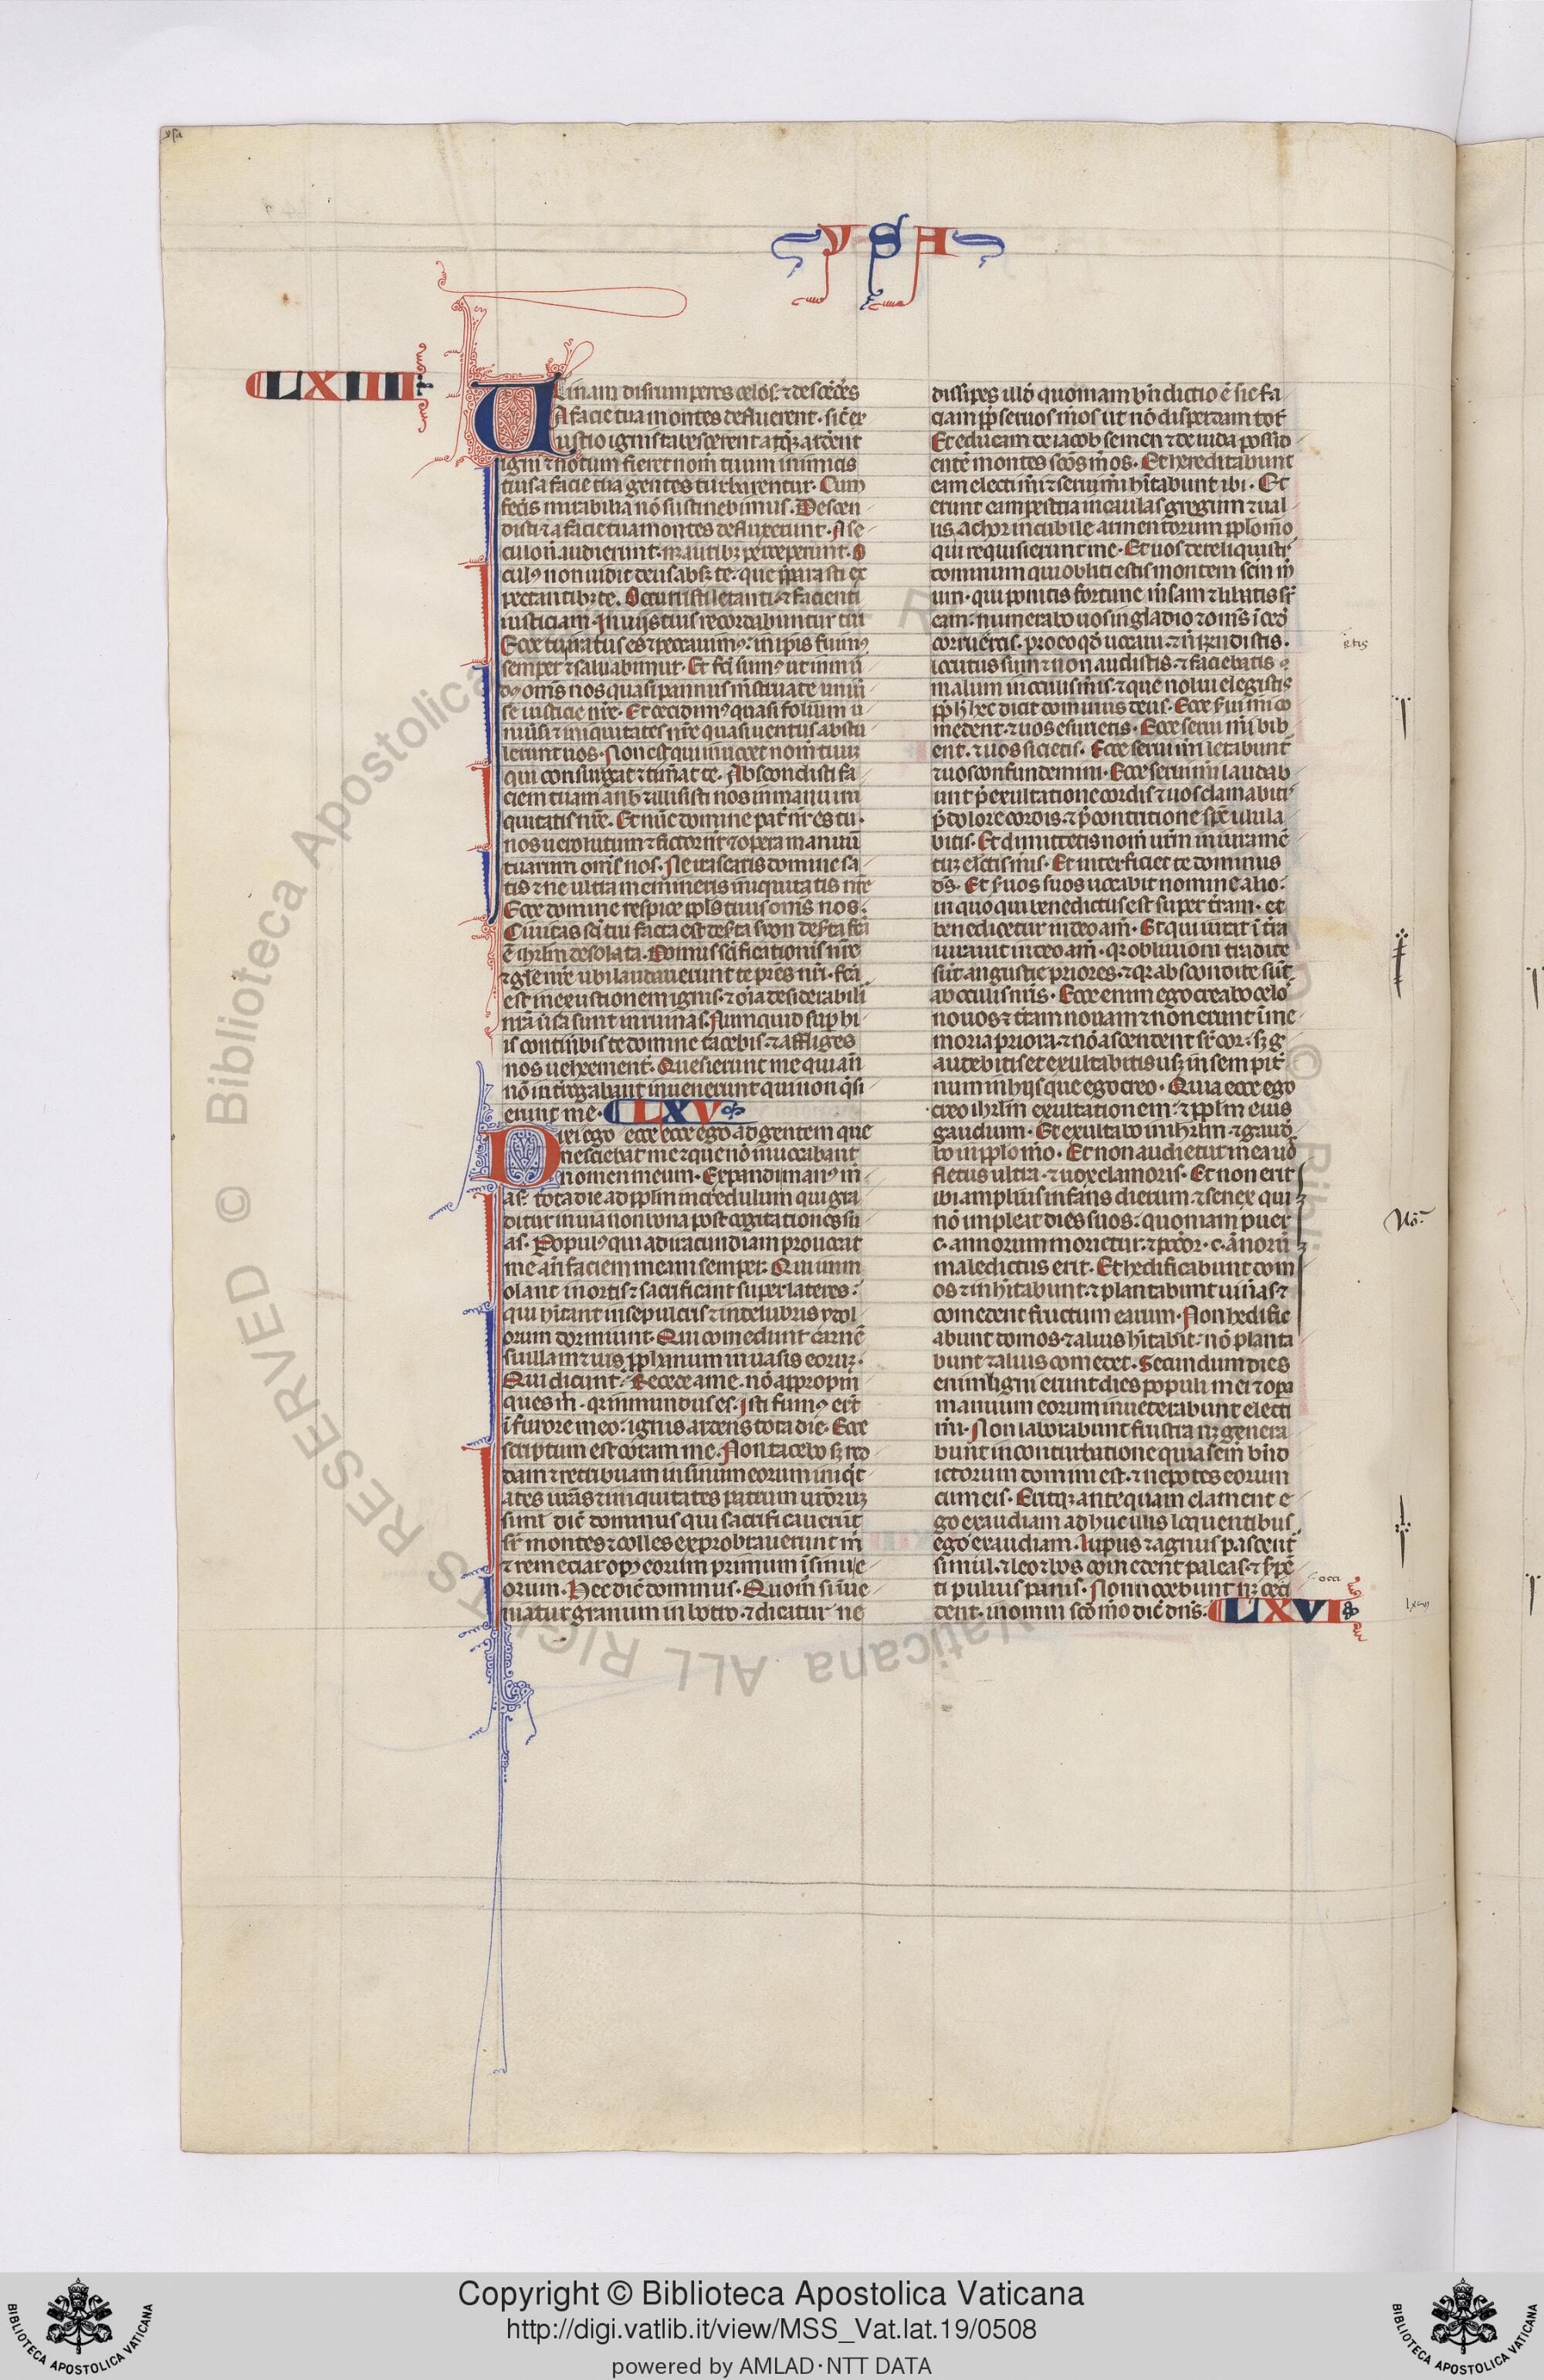 ysa
YSA
LXIIII
Utinam disrumperes celos. ⁊ desce̅de̅s
A facie tua montes defluerent. sic̅ ex
ustio ignis tabescerent atq̅ꝫ arde̅ent
igni ⁊ notum fieret nom̅ tuum inimicis
tuis a facie tua gentes turbarentur. Cum
fec̅is mirabilia no̅ sustinebimus. Descen
disti ⁊ a facie tua montes defluxerunt. A se
culo n̅ audierunt. nꝫ auribꝫ perceperunt. O
culꝰ non uidit deus absꝫ te. que p̅parasti ex
pectantibꝫ te. Occurristi letanti. ⁊ facienti
iusticiam. In uijs tuis recordabuntur tui
Ecce tu iratus es ⁊ peccauimꝰ. in ip̅is fuimꝰ
semper ⁊ saluabimur. Et fc̅i sumꝰ ut inmu̅
dꝰ om̅s nos quasi pannus m̅struate uniu̅
se iusticie nr̅e. Et cecidimꝰ quasi folium u
niuisi ⁊ iniquitates nr̅e quasi uentus abstu
lerunt nos. Non est qui inuocet nom̅ tuuꝫ
qui consurgat ⁊ tene̅at te. Abscondisti fa
ciem tuam a nob̅ ⁊ illisisti nos in manu ini
quitatis nr̅e. Et nu̅c domine pat̅ nr̅ es tu.
nos uero lutum ⁊ fictor nr̅ ⁊ opera manuu̅
tuarum om̅s nos. Ne irascaris domine sa
tis ⁊ ne ultra memineris iniquitatis nr̅e
Ecce domine respice ppl̅s tuus om̅s nos.
Ciuitas sc̅i tui facta est des̅ta syon des̅ta fc̅a
e̅ ihrlm̅ desolata. Domus sc̅ificationis nr̅e
⁊ gl̅e nr̅e ubi laudauerunt te pr̅es nr̅i. fc̅a
est in exustionem ignis. ⁊ oı̅a desiderabili
nr̅a u̅sa sunt in ruinas. Numquid sup̅ hi
is contin̅bis te domine tacebis. ⁊ affliges
nos uehement̅. Quesierunt me qui an̅
no̅ int̅rogabant inuenerunt qui non q̅si
erunt me. LXV
Dixi ego ecce ecce ego ad gentem que
nesciebat me ⁊ que no̅ inuocabant
nomen meum. Expandi manꝰ m̅
as. tota die ad ppl̅m incredulum qui gra
ditur in uia non bona post cogitationes su
as. Populꝰ qui ad iracundiam prouocat
me an̅ faciem meam semper. Qui imm
olant in ortis ⁊ sacrificant super lateres.
qui hi̅tant in sepulcris ⁊ in delubris ydol
orum dormiunt. Qui comedunt carne̅
suillam ⁊ ius pphanum in uasis eoruꝫ.
Qui dicunt. Recede a me. no̅ appropin
ques m̅. qr̅ inmundus es. isti fumꝰ er̅t
i̅ furore meo. ignis ardens tota die. Ecce
scriptum est coram me. Non tacebo sꝫ red
dam ⁊ retribuam in sinum eorum iniq̅t
ates ur̅as ⁊ iniquitates patrum ur̅oruꝫ
simł dic̅ dominus qui sacrificauerut̅
sr̅ montes ⁊ colles exprobrauerunt m̅
⁊ remeciar opꝰ eorum primum i̅ sinu e
orum. Hec dic̅ dominus. Quom̅ si i̅ue
niatur granum in botro. ⁊ dicatur ne
dissipes illd̅ quoniam bn̅dictio e̅ sic fa
ciam pp̅ seruos m̅os ut no̅ disperdam tot̅
Et educam de iacob semen ⁊ de iuda possid
ente̅ montes sc̅os m̅os. Et hereditabunt
eam electi m̅i ⁊ serui m̅i hi̅tabunt ibi. Et
erunt campestria in caulas gregum ⁊ ual
lis achor in cubile armentorum pplo m̅o
qui requisierunt me. Et uos dereliquisti
dominum qui obliti estis montem scm̅ m̅
um. qui ponitis fortune m̅sam ⁊ libatis sr̅
eam. numerabo uos in gladio ⁊ om̅s i̅ ced̅
corruetis. pro eo qd̅ uocaui. ⁊ n̅ rn̅distis.
etis
locutus sum ⁊ non audistis. ⁊ faciebatis
malum in oculis m̅is. ⁊ que nolui elegistis
pp̅ h̅ hec dicit dominus deus. Ecce s̅ui m̅i co
medent. ⁊ uos esurietis. Ecce serui m̅i bib
ent. ⁊ uos sicietis. Ecce serui m̅i letabunt̅
⁊ uos confundemini. Ecce serui m̅i laudab
unt p̅ exultatione cordis ⁊ uos clamabitis
p̅ dolore cordis. ⁊ p̅ contritione sp̅c ulula
bitis. Et dimittetis nom̅ urm̅ in iurame̅
tuꝫ elctis m̅is. Et interficiet te dominus
ds̅. Et s̅uos suos uocabit nomine alio.
in quo qui benedictus est super t̅ram. et
benedicetur in deo am̅. Et qui iurat i̅ t̅ra
iurauit in deo am̅. qr̅ obliuioni tradite
su̅t angustie priores. ⁊ qr̅ abscondite su̅t
ab oculis nr̅is. Ecce enim ego creabo celo
nouos ⁊ t̅ram nouam ⁊ non erunt i̅ me
moria priora. ⁊ no̅ ascendent sr̅ cor. sꝫ g
audebitis et exultabitis usꝫ in sempit̅
num in hijs que ego creo. Quia ecce ego
creo ihrlm̅ exultationem. ⁊ ppl̅m eius
gaudium. Et exultabo in ihrlm̅ ⁊ gaud̅
bo in pplo m̅o. Et non audietur in ea uo̅
fletus ultra. ⁊ uox clamoris. Et non erit
ibi amplius infans dierum. ⁊ senex qui
no̅ impleat dies suos. quoniam puer
No̅
c. annorum morietur. ⁊ pecc̅or. c. a̅norum
maledictus erit. Et hedificabunt dom
os ⁊ inhi̅tabunt. ⁊ plantabunt uin̅as. ⁊
comedent fructum earum. Non hedific
abunt domos. ⁊ alius hi̅tabit. no̅ planta
bunt ⁊ alius comedet. Secundum dies
enim ligni erunt dies populi mei ⁊ opa
manuum eorum inueterabunt electi
m̅i. Non laborabunt frustra nꝫ genera
bunt in conturbatione quia sem̅ bn̅d
ictorum domini est. ⁊ nepotes eorum
cum eis. Eritqꝫ antequam clament e
go exaudiam adhuc illis loquentibus
ego exaudiam. Lupus ⁊ agnus pascent̅
simul. ⁊ leo ⁊ bos comedent paleas. ⁊ s̅pe̅
ti puluis panis. Non nocebunt nꝫ occi
occi
dent. in omni sc̅o m̅o dic̅ dn̅s. LXVI
lxvi
© Biblioteca Apostolica Vaticana ALL RIGHTS RESERVED
BIBLIOTECA APOSTOLICA VATICANA
Copyright © Biblioteca Apostolica Vaticana
http://digi.vatlib.it/view/MSS_Vat.lat.19/0508
powered by AMLAD·NTT DATA
BIBLIOTECA APOSTOLICA VATICANA